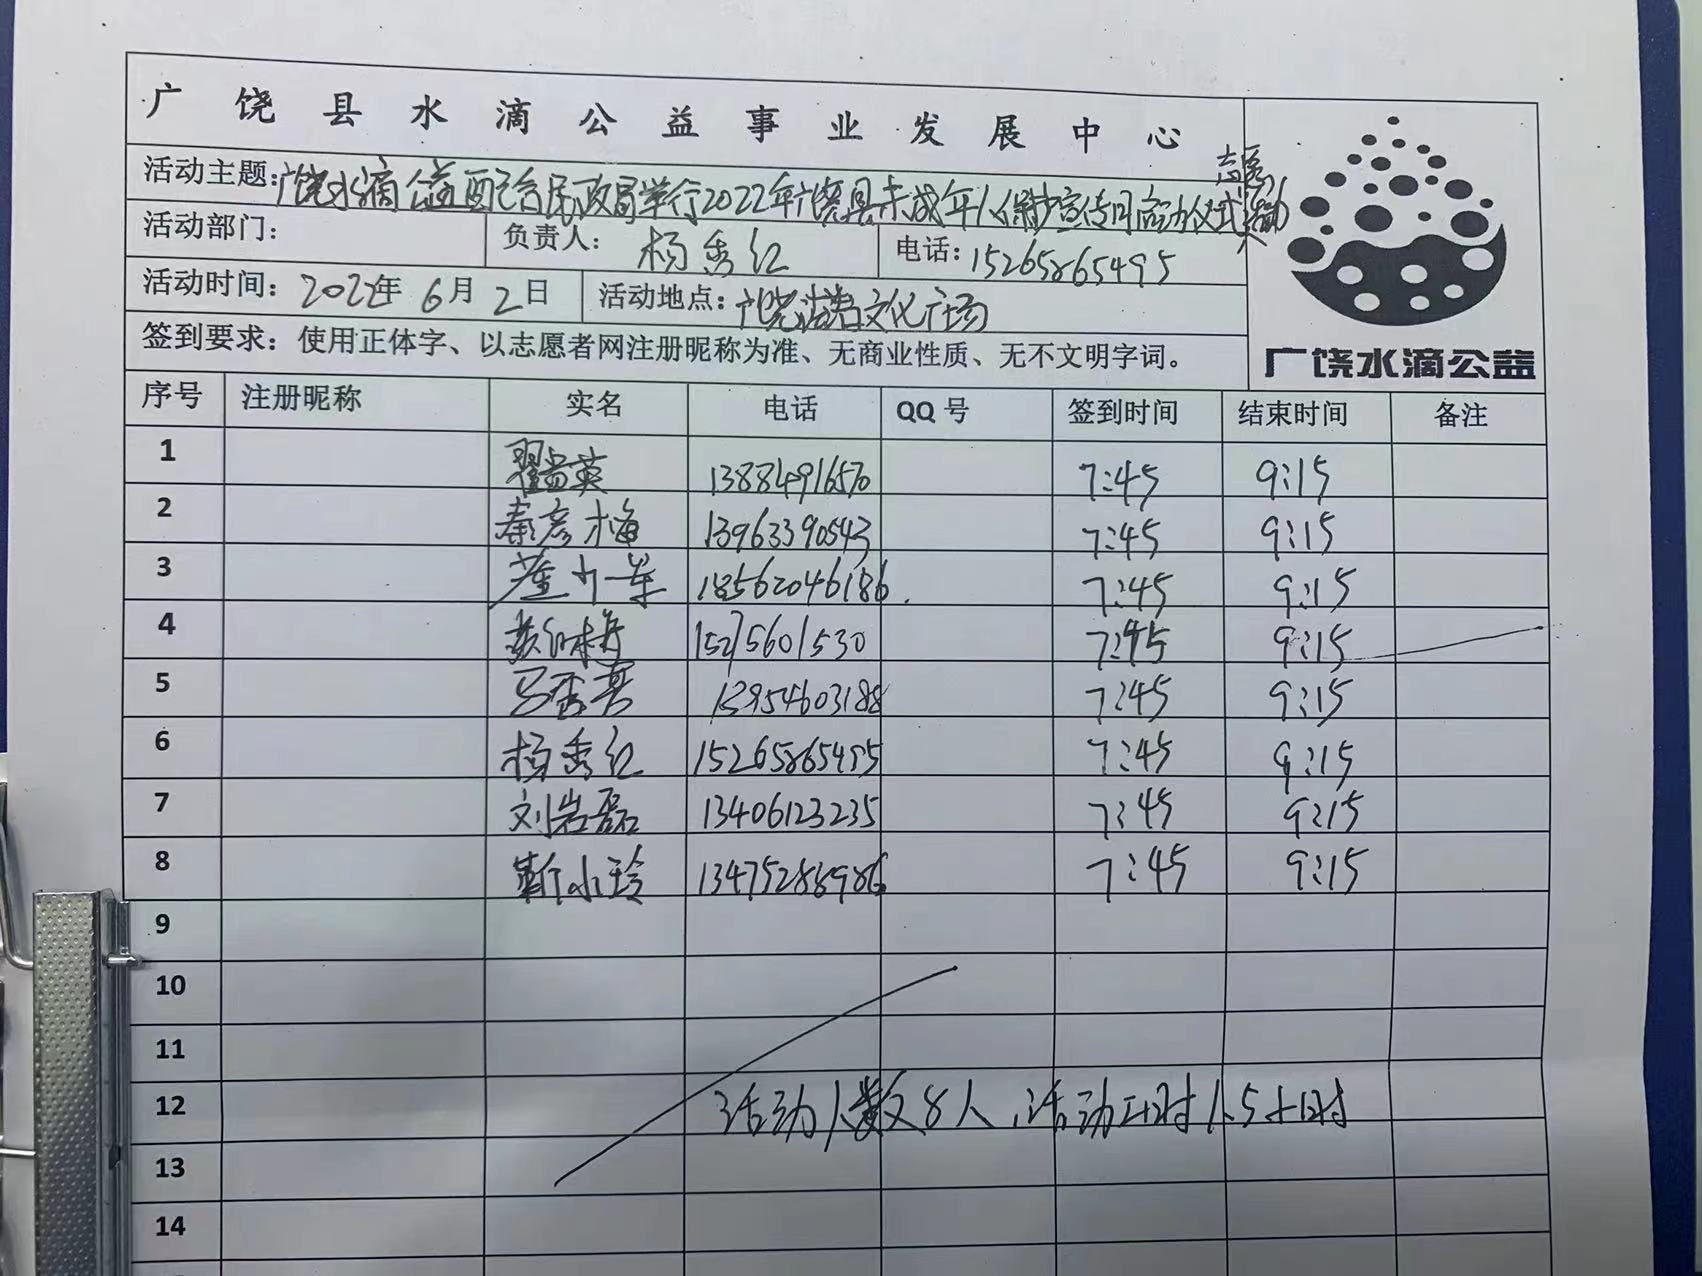 广饶县水滴公益事业发展中心
活动主题:广饶水滴公益配合民政局举行2022年广饶县未成年人保护宣传月启动仪式志愿活动
活动部门: 负责人: 杨秀红 电话:15265865495
活动时间: 2022年6月2日 活动地点:广饶法治文化广场
签到要求:使用正体字、以志愿者网注册昵称为准、无商业性质、无不文明字词。
广饶水滴公益
序号 注册昵称 实名 电话 QQ号 签到时间 结束时间 备注
1 翟益英 13884916570 7:45 9:15
2 秦彦梅 13963390543 7:45 9:15
3 18562046186 7:45 9:15
4 15275601530 7:45 9:15
5 13954603188 7:45 9:15
6 杨秀红 15265865495 7:45 9:15
7 刘岩磊 13406123235 7:45 9:15
8 靳水玲 13475288986 7:45 9:15
9
10
11
12 活动人数8人,活动工时1.5小时
13
14